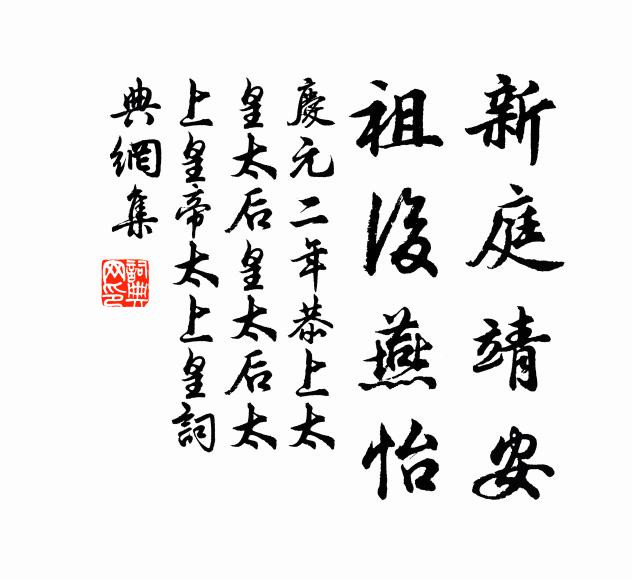 新庭靖安
祖後燕怡
慶元二年恭上太
皇太后皇太后太
上皇帝太上皇詞
典網集
詞典網印